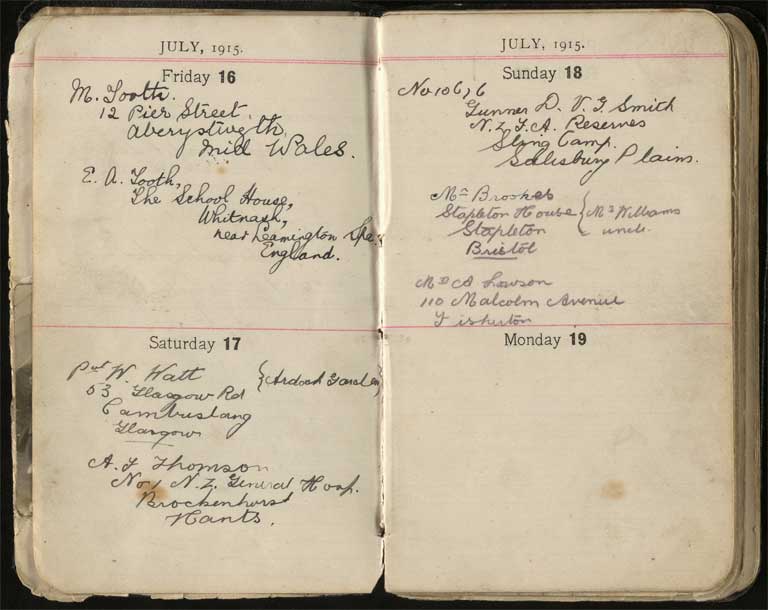 JULY, 1915.
Friday 16
M. Tooth.
12 Pier Street,
Aberystwgth,
Mid Wales.
E. A. Tooth,
The School House,
Whitnash,
near Leamington Spa,
England.
Saturday 17
Pvt W. Watt
53 Glasgow Rd {Ardoch Garden}
Cambuslang
Glasgow
A. F. Thomson
No 1 N.Z. General Hosp.
Brockenhurst
Hants.
JULY, 1915.
Sunday 18
No 10676
Gunner D. V. G Smith
N.Z.F.A. Reserves
Sling Camp.
Salisbury Plains.
Mr Brookes
Stapleton House { Mrs Williams
Stapleton uncle.
Bristol
Mrs A Lawson
110 Malcolm Avenue
Fisherton
Monday 19